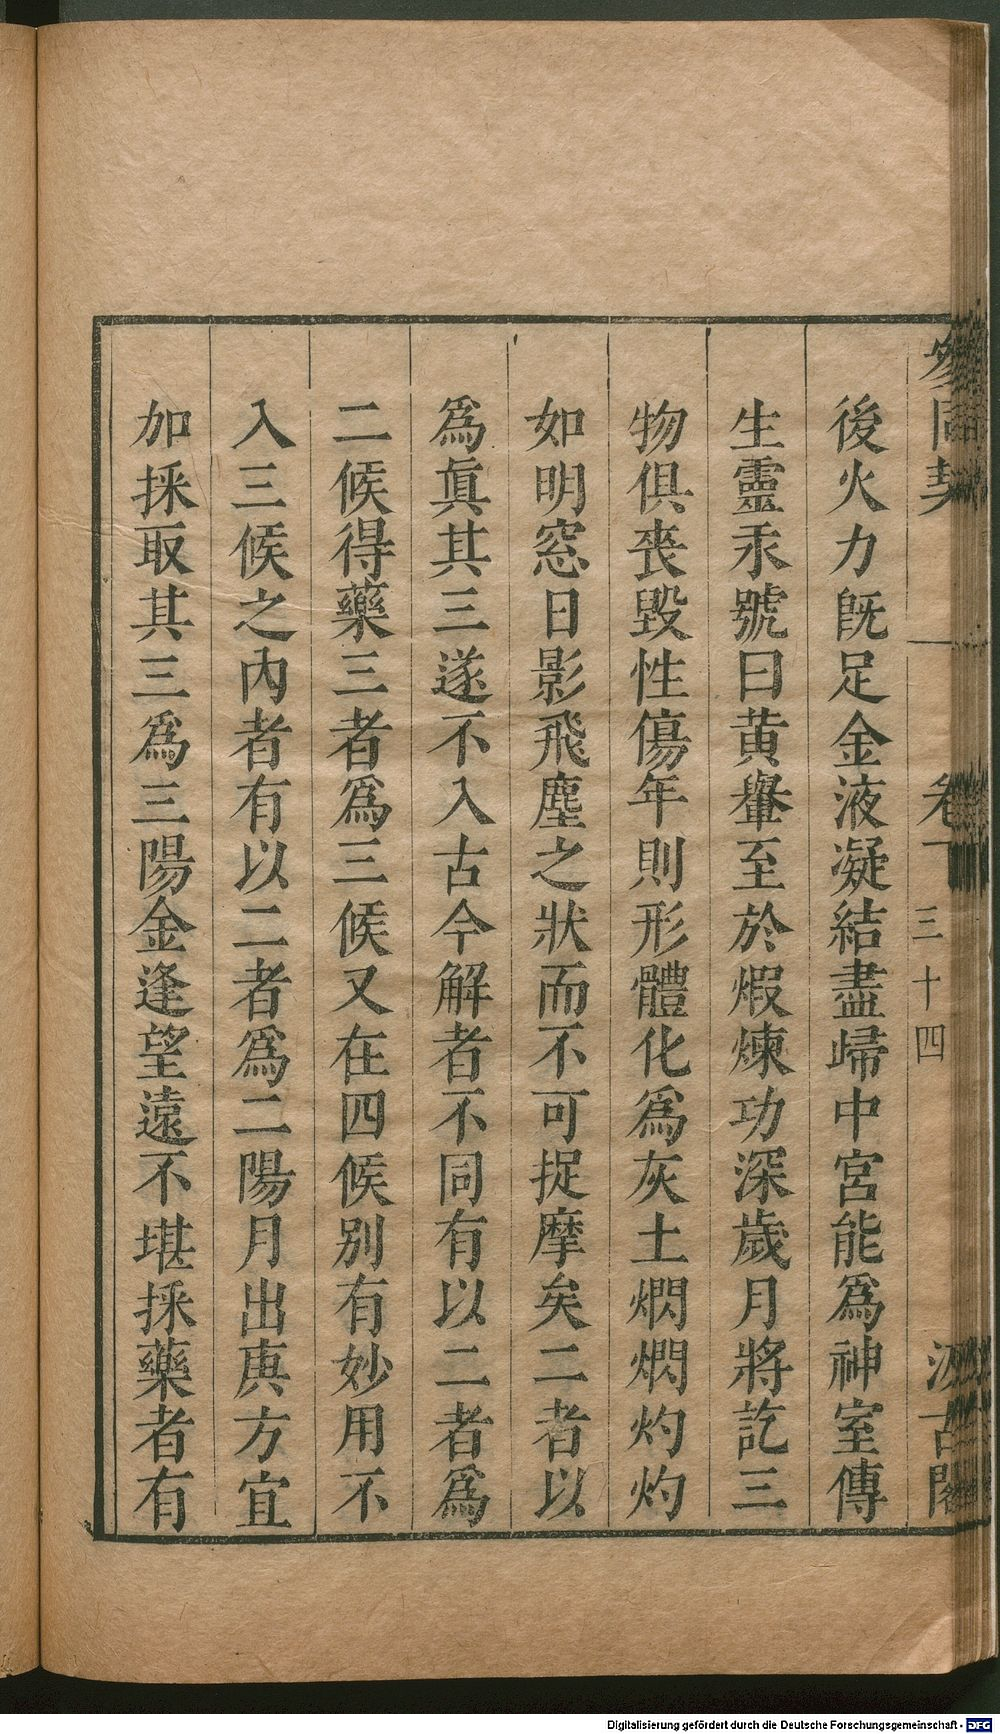 參同契 卷一 三十四 汲古閣
後火力旣足金液凝結盡歸中宮能爲神室傳
生靈汞號曰黄轝至於煆煉功深歲月將訖三
物俱喪毀性傷年則形體化爲灰土燜燜灼灼
如明窓日影飛塵之狀而不可捉摩矣二者以
爲眞其三遂不入古今解者不同有以二者爲
二候得藥三者爲三候又在四候別有妙用不
入三候之內者有以二者爲二陽月出庚方宜
加採取其三爲三陽金逢望遠不堪採藥者有
Digitalisierung gefördert durch die Deutsche Forschungsgemeinschaft - DFG